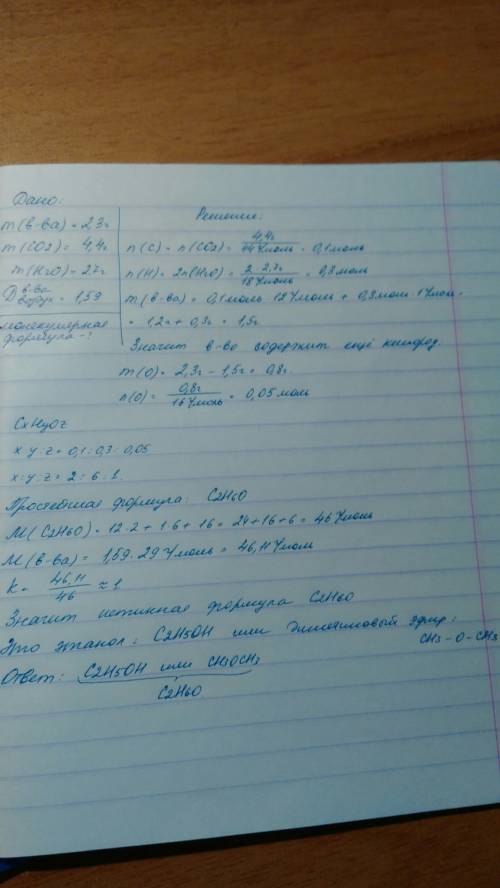 Дано:
m(в-ва) = 2,3г
m(CO2) = 4,4г
m(H2O) = 2,7г
D в-ва воздух = 1,59
молекулярная
формула - ?
Решение:
n(C) = n(CO2) = 4,4г / 44 г/моль = 0,1 моль
n(H) = 2n(H2O) = 2 · 2,7г / 18 г/моль = 0,3 моль
m(в-ва) = 0,1 моль · 12 г/моль + 0,3 моль · 1 г/моль =
= 1,2г + 0,3г = 1,5г
Значит в-во содержит ещё кислород.
m(O) = 2,3г - 1,5г = 0,8г
n(O) = 0,8г / 16 г/моль = 0,05 моль
CxHyOz
x:y:z = 0,1 : 0,3 : 0,05
x:y:z = 2 : 6 : 1
Простейшая формула: C2H6O
M(C2H6O) = 12·2 + 1·6 + 16 = 24+16+6 = 46 г/моль
M(в-ва) = 1,59 · 29 г/моль = 46,11 г/моль
k = 46,11 / 46 ≈ 1
Значит истинная формула C2H6O
Это этанол: C2H5OH или диметиловый эфир:
CH3-O-CH3
Ответ: C2H5OH или CH3OCH3
C2H6O